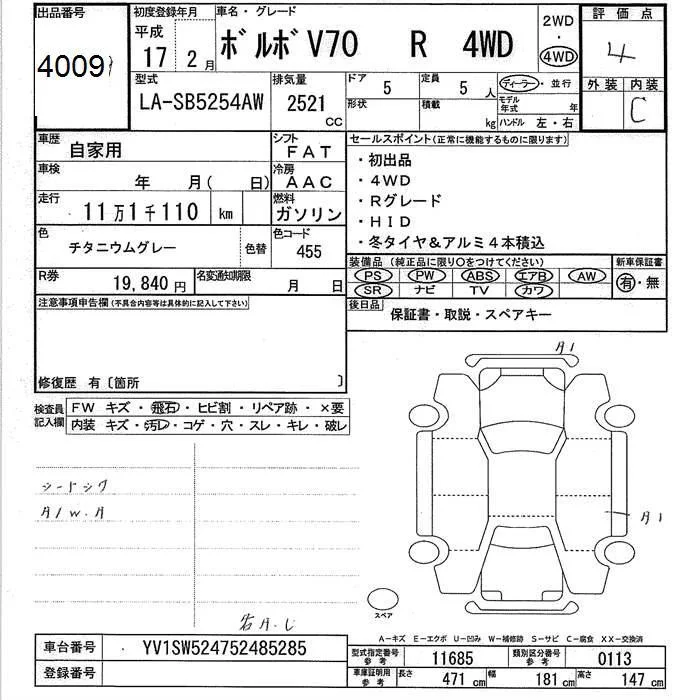 出品番号 初度登録年月 車名・グレード 2WD 評価点
4009 平成 17 2月 ボルボ V70 R 4WD ・ 4WD 4
型式 排気量 ドア 定員 ディーラー・並行 外装 内装
LA-SB5254AW 2521 CC 5 5 人 モデル年式 年 C
形状 積載 kg ハンドル 左・右
車歴 自家用 シフト FAT セールスポイント(正常に機能するものに限ります)
車検 年 月( 日) 冷房 AAC ・初出品
・4WD
走行 11万1千110 km 燃料 ガソリン ・Rグレード
・HID
色 チタニウムグレー 色替 色コード 455 ・冬タイヤ&アルミ4本積込
R券 19,840円 名変通知期限 月 日 装備品(純正品に限り○をつけてください) 新車保証書
PS PW ABS エアB AW 有・無
SR ナビ TV カワ
注意事項申告欄(不具合内容等は具体的に記入して下さい) 後日品 保証書・取説・スペアキー
修復歴 有〔箇所 〕
検査員記入欄 FW キズ・飛石・ヒビ割・リペア跡・×要
内装 キズ・汚レ・コゲ・穴・スレ・キレ・破レ
A1
シートシワ
A/W.A
A1
スペア
A-キズ E-エクボ U-凹み W-補修跡 S-サビ C-腐食 XX-交換済
車台番号 YV1SW524752485285 型式指定番号 参考 11685 類別区分番号 参考 0113
登録番号 車庫証明用 参考 長さ 471 cm 幅 181 cm 高さ 147 cm